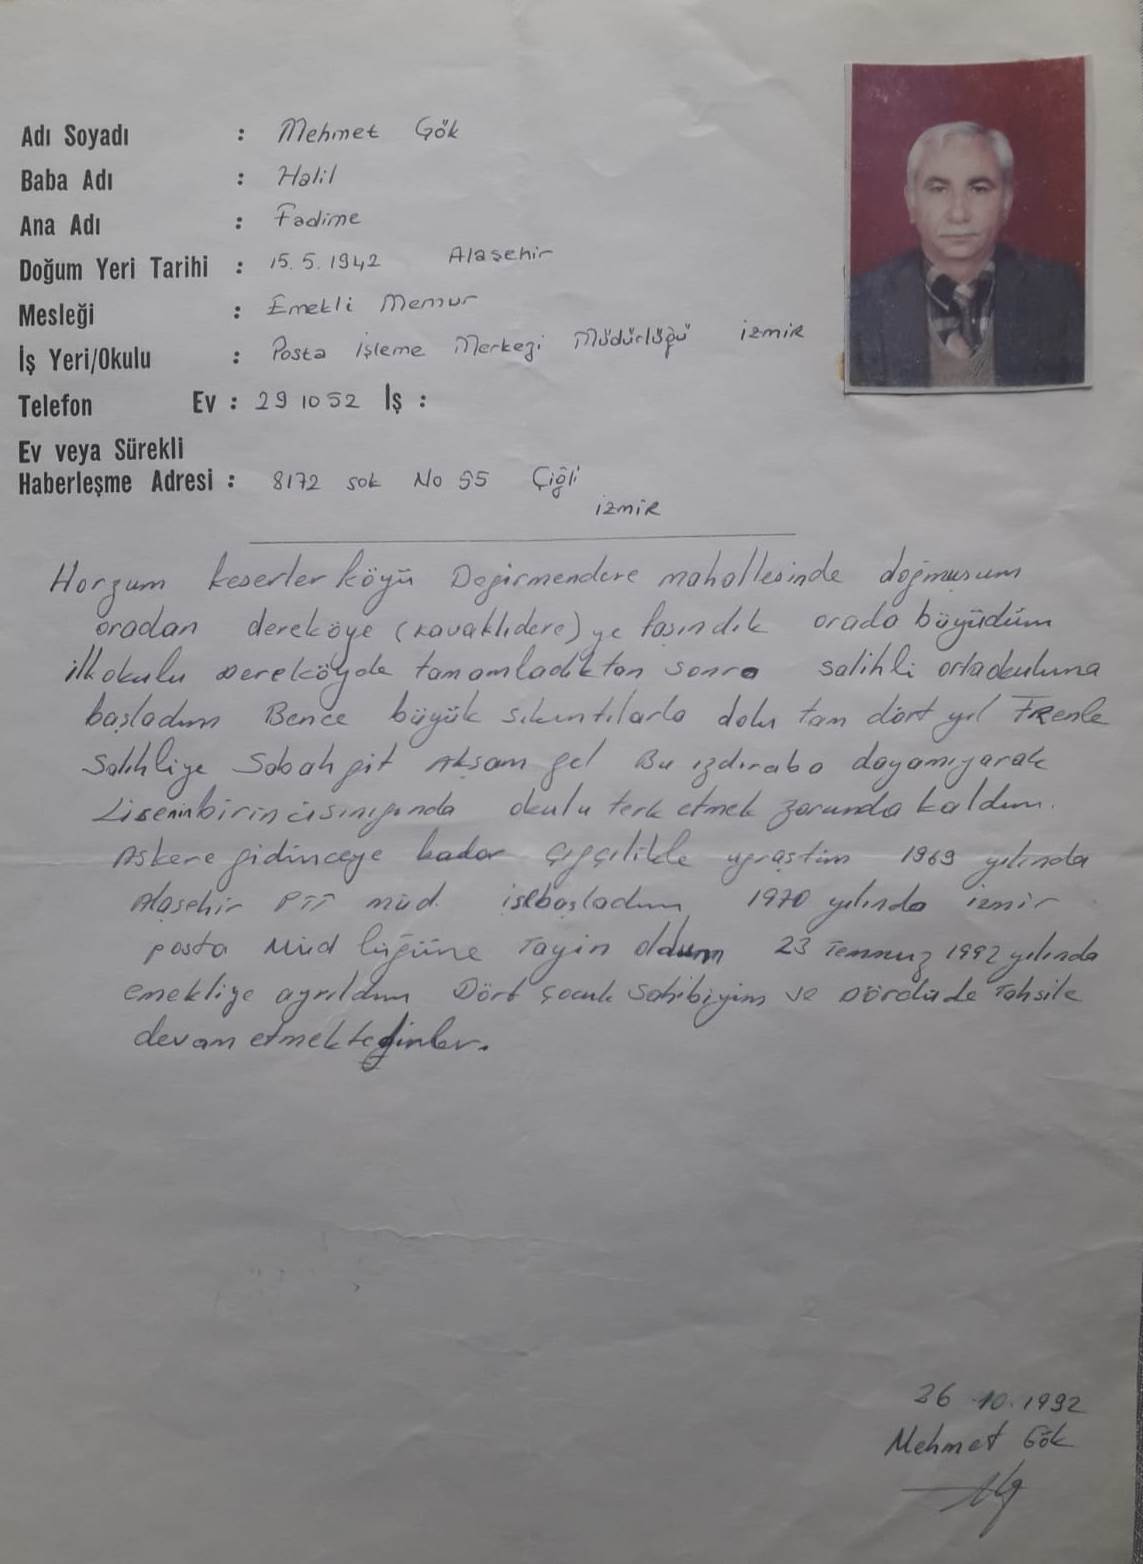 Adı Soyadı : Mehmet Gök
Baba Adı : Halil
Ana Adı : Fadime
Doğum Yeri Tarihi : 15.5.1942 Alaşehir
Mesleği : Emekli Memur
İş Yeri/Okulu : Posta işleme Merkezi Müdürlüğü izmiR
Telefon Ev : 29 10 52 İş :
Ev veya Sürekli
Haberleşme Adresi : 8172 sok No 55 Çiğli
izmiR
Horzum keserler köyü Değirmendere mahallesinde doğmuşum
oradan dereköye (Kavaklıdere) ye taşındık orada büyüdüm
ilkokulu Dereköyde tamamladıktan sonra salihli ortaokuluna
başladım Bence büyük sıkıntılarla dolu tam dört yıl TRenle
Salihliye Sabah git Akşam gel Bu ızdıraba dayamıyarak
Lisenin birinci sınıfında okulu terk etmek zorunda kaldım.
Askere gidinceye kadar çifçilikle uğraştim 1969 yılında
Alaşehir PTT müd. işebaşladım 1970 yılında izmir
posta Müd lüğüne Tayin oldum 23 Temmuz 1992 yılında
emekliye ayrıldım Dört çocuk sahibiyim ve Dördüde Tahsile
devam etmektedirler.
26.10.1992
Mehmet Gök